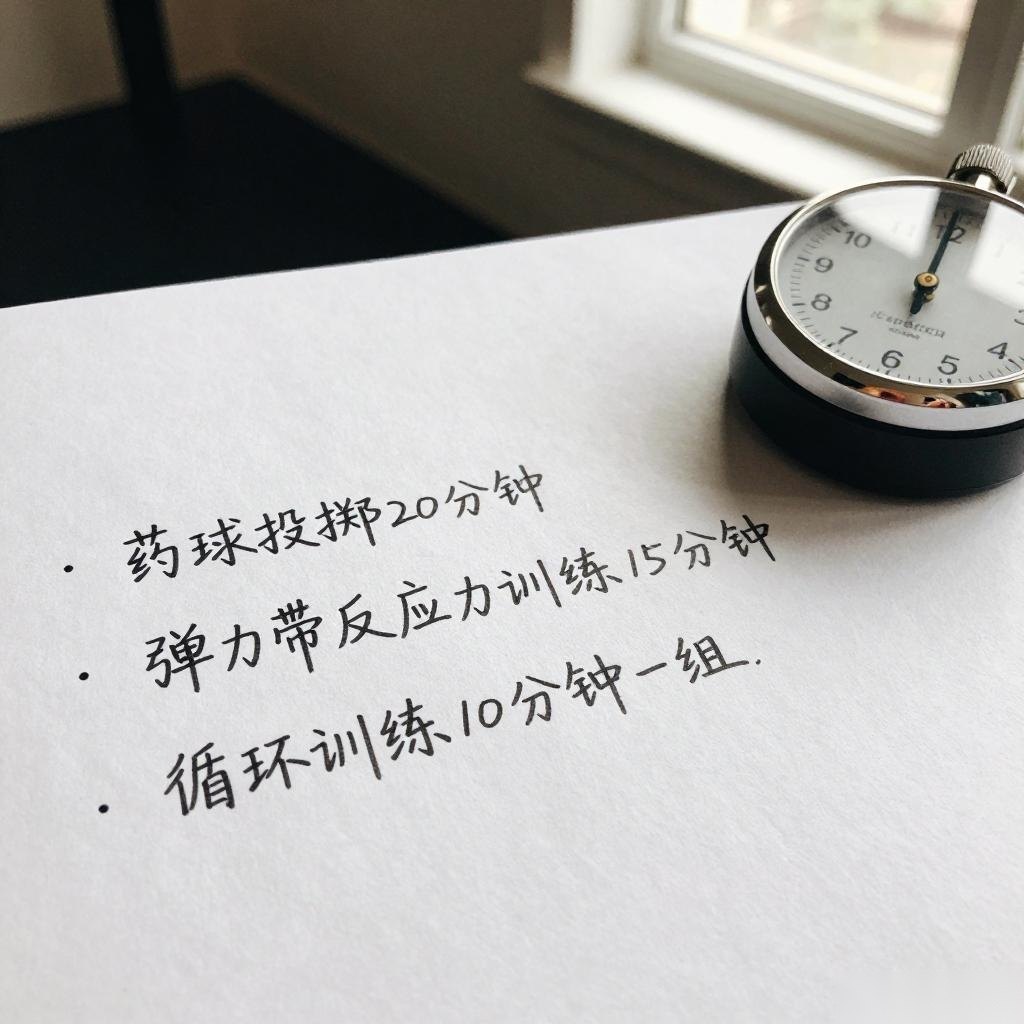 · 药球投掷20分钟
· 弹力带反应力训练15分钟
· 循环训练10分钟一组.
10
11
12
9
8
7
6
5
4